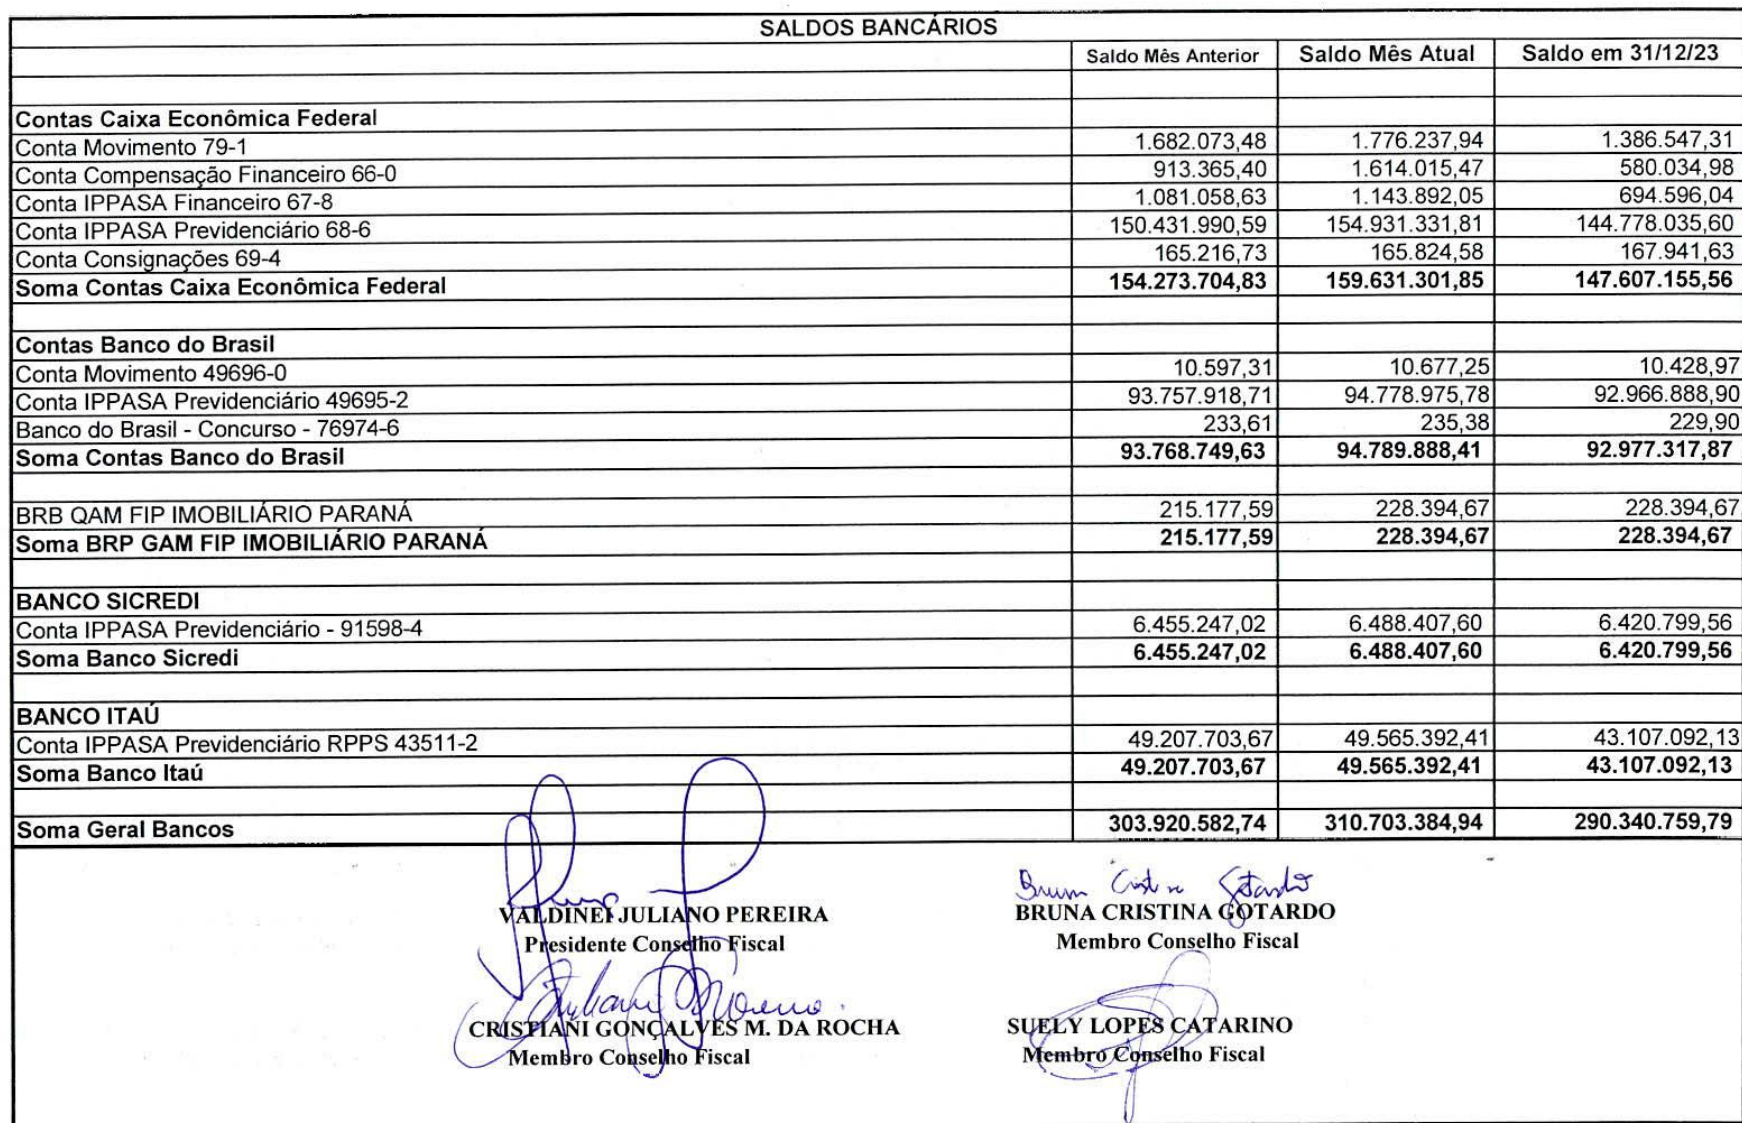 SALDOS BANCÁRIOS
Saldo Mês Anterior Saldo Mês Atual Saldo em 31/12/23
Contas Caixa Econômica Federal
Conta Movimento 79-1 1.682.073,48 1.776.237,94 1.386.547,31
Conta Compensação Financeiro 66-0 913.365,40 1.614.015,47 580.034,98
Conta IPPASA Financeiro 67-8 1.081.058,63 1.143.892,05 694.596,04
Conta IPPASA Previdenciário 68-6 150.431.990,59 154.931.331,81 144.778.035,60
Conta Consignações 69-4 165.216,73 165.824,58 167.941,63
Soma Contas Caixa Econômica Federal 154.273.704,83 159.631.301,85 147.607.155,56
Contas Banco do Brasil
Conta Movimento 49696-0 10.597,31 10.677,25 10.428,97
Conta IPPASA Previdenciário 49695-2 93.757.918,71 94.778.975,78 92.966.888,90
Banco do Brasil - Concurso - 76974-6 233,61 235,38 229,90
Soma Contas Banco do Brasil 93.768.749,63 94.789.888,41 92.977.317,87
BRB QAM FIP IMOBILIÁRIO PARANÁ 215.177,59 228.394,67 228.394,67
Soma BRP GAM FIP IMOBILIÁRIO PARANÁ 215.177,59 228.394,67 228.394,67
BANCO SICREDI
Conta IPPASA Previdenciário - 91598-4 6.455.247,02 6.488.407,60 6.420.799,56
Soma Banco Sicredi 6.455.247,02 6.488.407,60 6.420.799,56
BANCO ITAÚ
Conta IPPASA Previdenciário RPPS 43511-2 49.207.703,67 49.565.392,41 43.107.092,13
Soma Banco Itaú 49.207.703,67 49.565.392,41 43.107.092,13
Soma Geral Bancos 303.920.582,74 310.703.384,94 290.340.759,79
Bruna Cristina Gotardo
VALDINEI JULIANO PEREIRA BRUNA CRISTINA GOTARDO
Presidente Conselho Fiscal Membro Conselho Fiscal
CRISTIANI GONÇALVES M. DA ROCHA SUELY LOPES CATARINO
Membro Conselho Fiscal Membro Conselho Fiscal